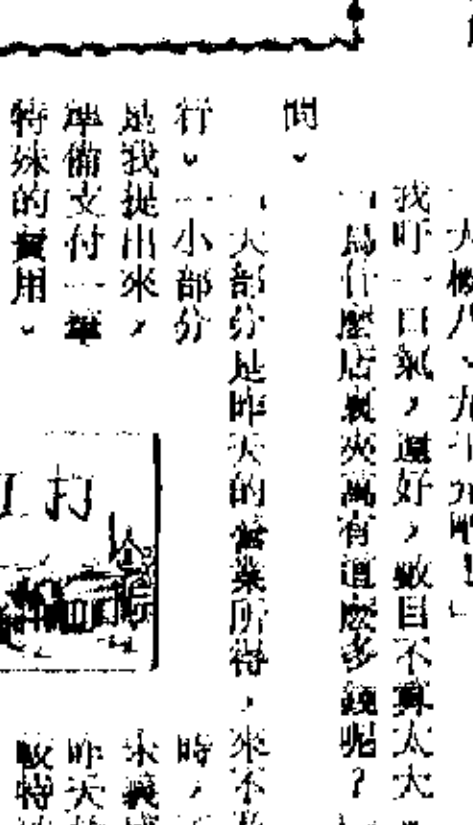 「大概八、九千元吧！」
我吁一口氣，還好，數目不算太大。
「爲什麼店裏夾萬有這麼多錢呢？」
問。
「大部分是昨天的營業所得，來不
行。一小部分
是我提出來，
準備支付一筆
特殊的費用。
打
時，
昨天
較特